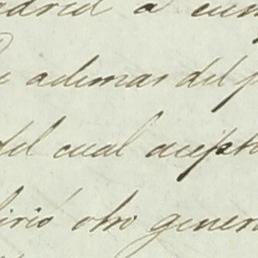 adrid a cum
ademas del p
del cual acepto
irió otro gener